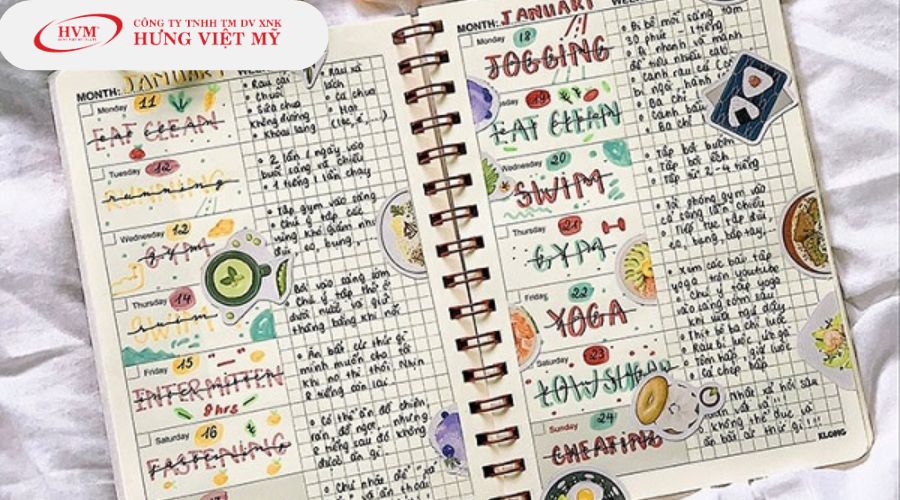 HVM
CÔNG TY TNHH TM DV XNK
HƯNG VIỆT MỸ
MONTH: JANUARY
Monday 11
EAT CLEAN
• Rau cải
• Chuối
• Sữa chua
không đường
• Khoai lang
• Rau xà
lách
• Cà chua
• Hạt
(lạc, ...)
Tuesday 12
RUNNING
running
• 2 lần 1 ngày vào
buổi sáng và chiều
• 1 tiếng 1 lần chạy
Wednesday 12
GYM
• Tập gym vào sáng
• Chú ý tập các
vùng khó giảm như
đùi, eo, bụng,
Thursday 14
SWIM
• Bơi vào sáng sớm
• Chú ý tập thở ở
dưới nước và giữ
thăng bằng khi nổi
Friday 15
INTERMITTEN
8hrs
• Ăn bất cứ thứ gì
mình muốn cho tới
khi no thì thôi. Nhịn
8 tiếng còn lại
Saturday 16
FASTENING
• Có thể ăn đồ chiên,
rán, đồ ngọt, nhưng
8 tiếng sau đó không
được ăn gì
MONTH: JANUARY
Monday 18
JOGGING
• Đi bộ mỗi sáng tầm
30 phút - 1 tiếng
• Đi nhanh và mạnh
để tiêu nhiều calo
19
EAT CLEAN
• Canh rau củ
• Ba chỉ
• Canh bầu
• Ba chỉ
Wednesday 20
SWIM
• Tập bơi bướm
• Tập bơi ếch
• Tập từ 2-4 tiếng
Thursday 21
GYM
• Tới phòng gym vào
cả sáng lẫn chiều
• Tiếp tục tập đùi,
eo, bụng, bắp tay,
Friday 22
YOGA
• Xem các bài tập
yoga trên youtube
• Chú ý tập yoga
vào sáng sớm sau
khi vừa ngủ dậy
Saturday 23
LOWSUGAR
• Thịt bò, ba chỉ luộc
• Rau bí luộc, ức gà
• Tôm hấp, giò luộc
• Cá chép hấp
Sunday 24
CHEATING
không thể dục và
ăn bất cứ thứ gì!!!
KLONG